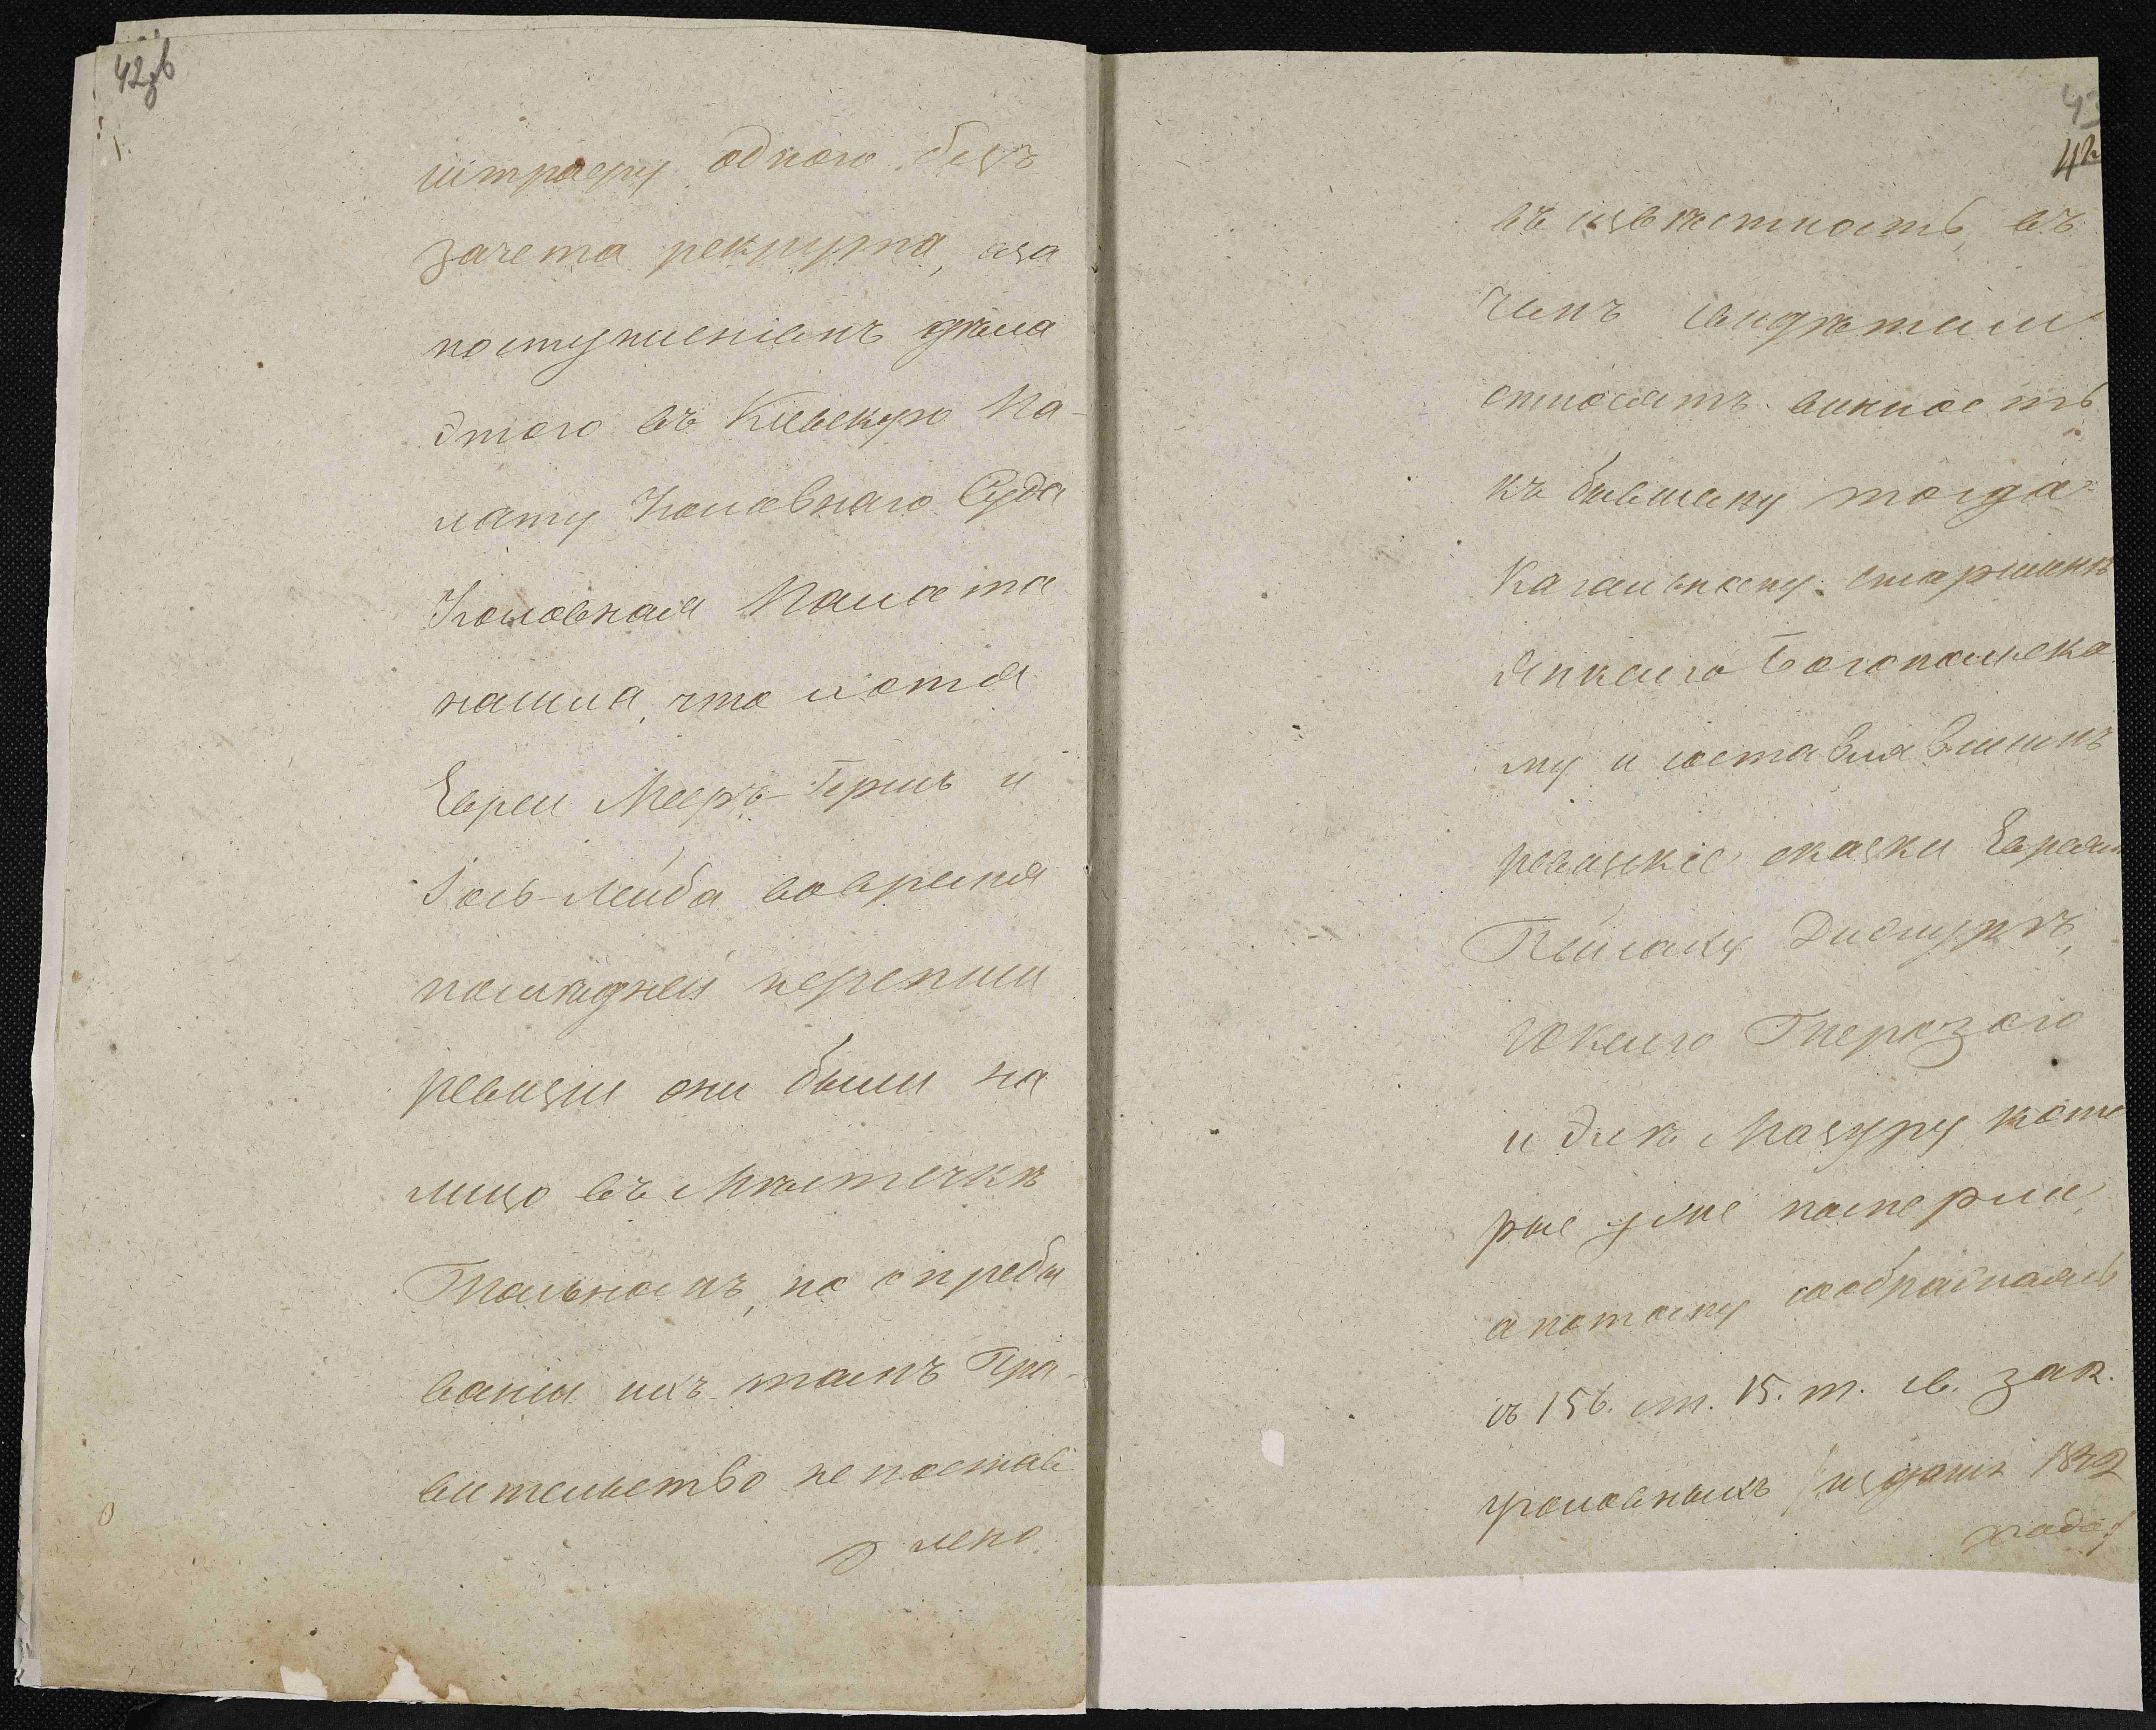 42зв
штрафу одного безъ
зачета рекрута, аза
поступленіемъ дѣла
этого въ Кіевскую Па-
лату Уголовнаго Суда
Уголовная Палата
нашла, что хотя
Евреи Мееръ-Гершъ и
Іось-Лейба вовремя
последней переписи
ревизіи они были на
лицо въ Мѣстечкѣ
Тальномъ, но о пребы
ваніи ихъ тамъ Пра-
вительство не постав
лено
43
42
въ извѣстность, въ
чемъ свидѣтели
относятъ винность
къ бывшему тогда
Кагальному старшинѣ
Янкелю Богопольско
му и составлявшимъ
ревизкіе сказки Евреям
Пейсаху
Юкелю
и Эль Мазуру кото
рые уже померли,
а потому сообразоваясь
съ 156. ст. 15. т. св. зак.
уголовныхъ /изданія 1842
года/